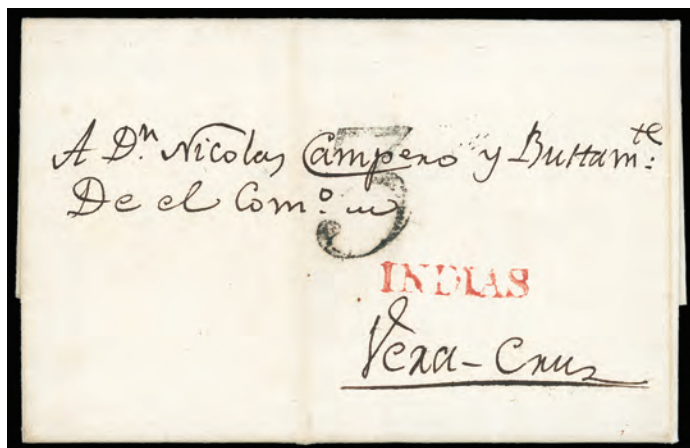 A Dⁿ Nicolas Campero y Bustamᵗᵉ:
De el Comº en
3
INDIAS
Vera-Cruz